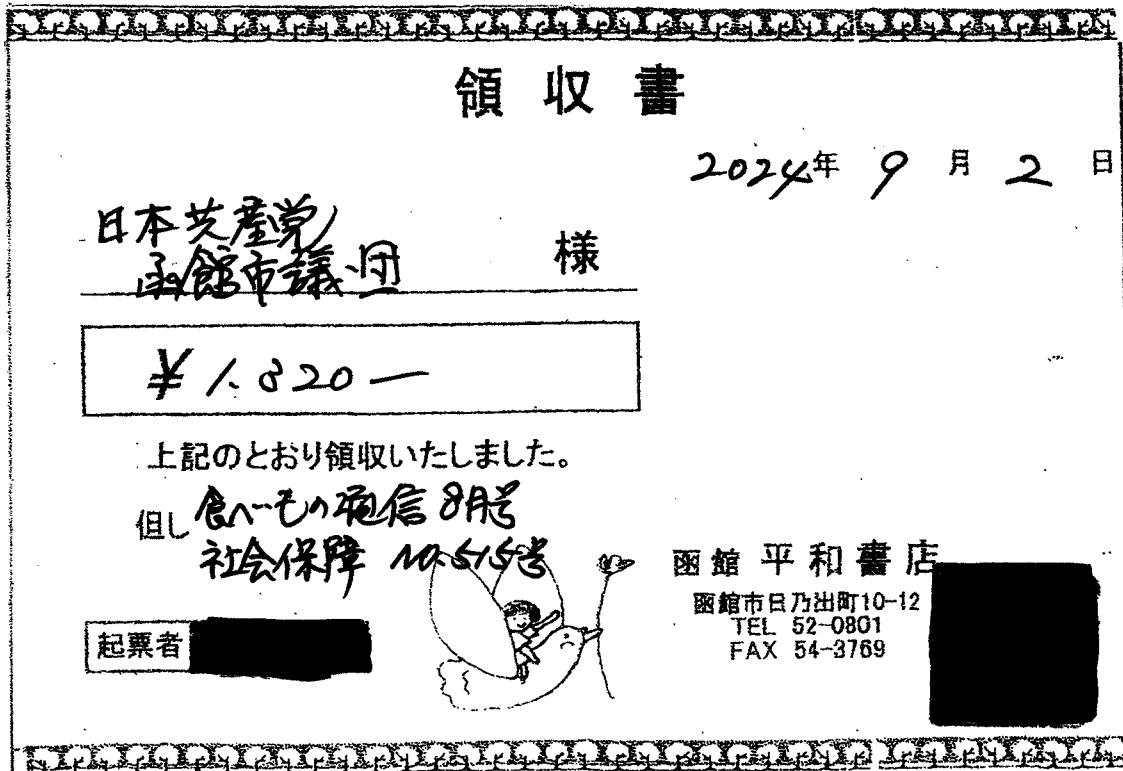 領収書
2024年 9月 2日
日本共産党
函館市議団 様
¥1.820―
上記のとおり領収いたしました。
但し 食べもの通信 8月号
社会保障 NO.515号
函館 平和書店
函館市日乃出町10-12
TEL 52-0801
FAX 54-3769
起票者